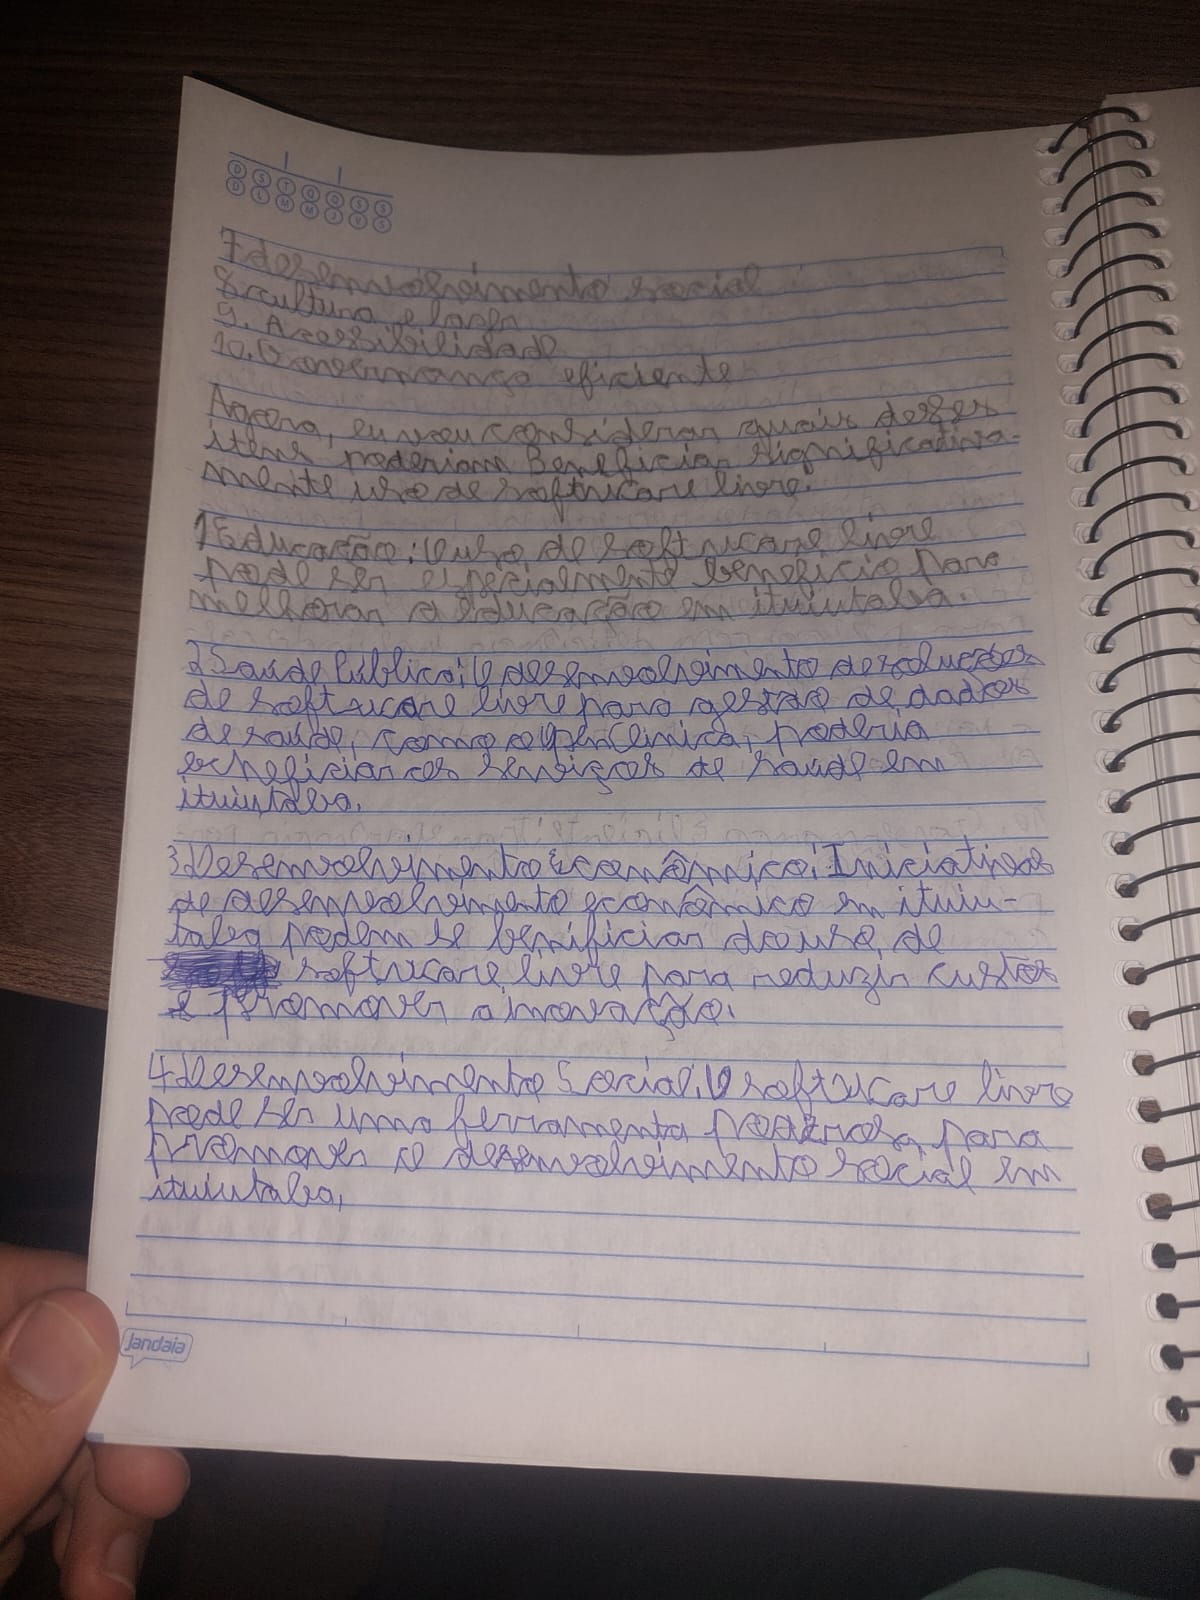 D S T Q Q S S
D L M M J V S
7 desenvolvimento social
8. cultura e lazer
9. Acessibilidade
10. Governança eficiente
Agora, eu vou considerar quais desses
itens poderiam Beneficiar significativa-
mente uso de software livre.
1 Educação: O uso de software livre
pode ser especialmente beneficio para
melhorar a educação em ituiutaba.
2 Saúde Pública: O desenvolvimento de soluções
de software livre para gestão de dados
de saúde, como o OpenClinica, poderia
beneficiar os serviços de saúde em
ituiutaba.
3 Desenvolvimento Econômico: Iniciativas
de desenvolvimento econômico em ituiu-
taba podem se benificiar do uso de
software livre para reduzir custos
e promover a inovação.
4 Desenvolvimento Social: O software livre
pode ser uma ferramenta poderosa para
promover o desenvolvimento social em
ituiutaba,
Jandaia